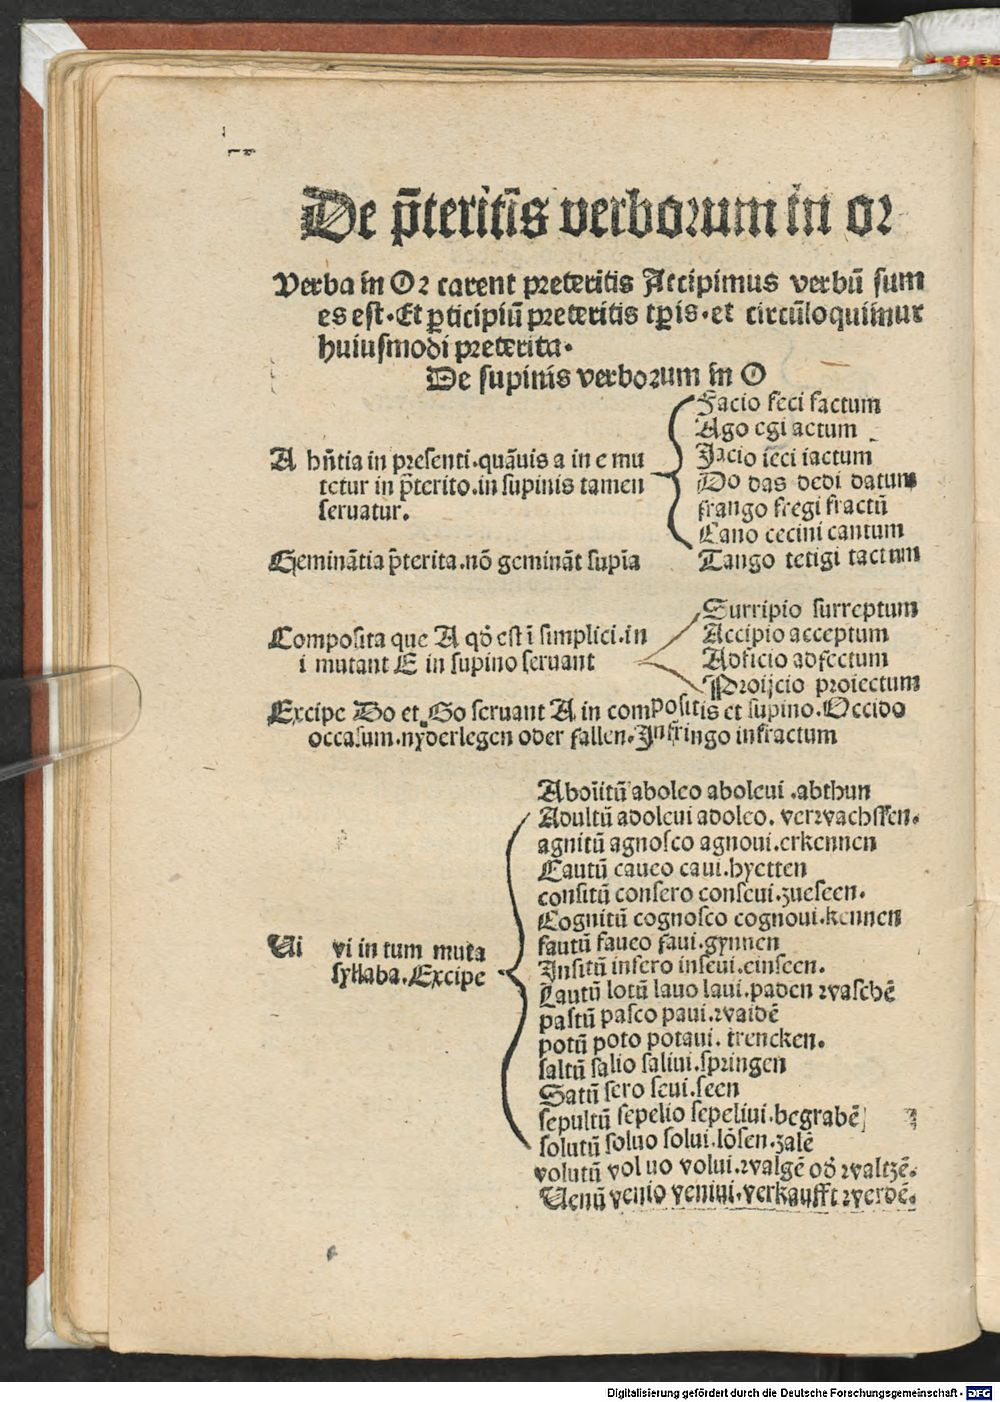 De p̄teritis verborum in or
Verba in Or carent preteritis Accipimus verbū sum
es est. Et ꝑticipiū preteritis tꝑis. et circūloquimur
huiusmodi preterita.
De supinis verborum in O
Facio feci factum
Ago egi actum
A hn̄tia in presenti. quāuis a in e mu
Jacio ieci iactum
tetur in p̄terito. in supinis tamen
Do das dedi datum
seruatur.
frango fregi fractū
Cano cecini cantum
Geminātia p̄terita. nō gemināt supīa
Tango tetigi tactum
Surripio surreptum
Composita que A qd̄ est ī simplici. in
Accipio acceptum
i mutant E in supino seruant
Adficio adfectum
Proijcio proiectum
Excipe Do et. Go seruant A in compositis et supino. Occido
occasum. nyderlegen oder fallen. Infringo infractum
Abolitū aboleo aboleui . abthun
Adultū adoleui adoleo. verwachssen.
agnitū agnosco agnoui. erkennen
Cautū caueo caui. hyetten
consitū consero conseui. zueseen.
Cognitū cognosco cognoui. kennen
fautū faueo faui. gynnen
Ui vi in tum muta
syllaba. Excipe
Insitū insero inseui. einseen.
Lautū lotū lauo laui. paden waschē
pastū pasco paui. waidē
potū poto potaui. trencken.
saltū salio saliui. springen
Satū sero seui. seen
sepultū sepelio sepeliui. begrabē
solutū soluo solui. lösen. zalē
volutū voluo volui. walgē od̄ waltzē.
Uenū venio veniui. verkaufft werdē.
Digitalisierung gefördert durch die Deutsche Forschungsgemeinschaft - DFG